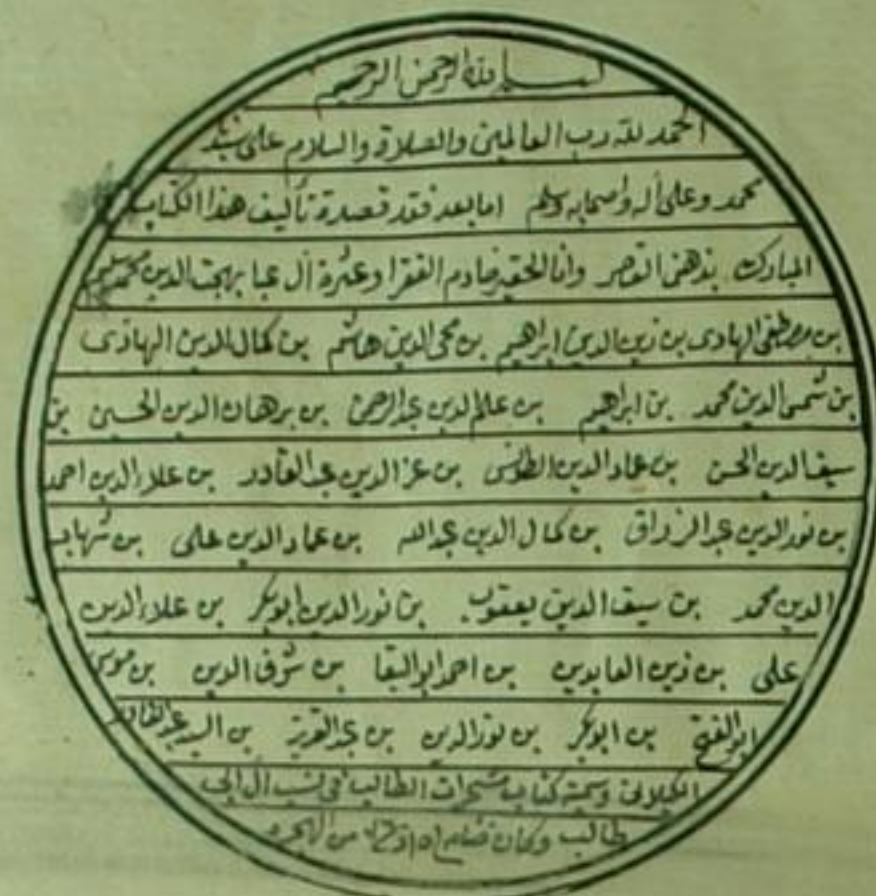 بسم الله الرحمن الرحيم
الحمد لله رب العالمين والصلاة والسلام على سيد
محمد وعلى أله واصحابه وسلم اما بعد فقد قصدة تأليف هذا الكتاب
المبارك بذهنى القصر وانا الحقير خادم الفقرا وعثرة أل عبا بهجت الدين محمد سليم
بن مصطفى الهادى بن زين الدين ابراهيم بن محى الدين هاشم بن كمال الدين الهادى
بن شمس الدين محمد بن ابراهيم بن علم الدين عبد الرحمن بن برهان الدين الحسين بن
سيف الدين الحسن بن عماد الدين بن عز الدين عبد القادر بن علاء الدين احمد
بن نور الدين عبد الرزاق بن كمال الدين عبد الله بن عماد الدين على بن شهاب
الدين محمد بن سيف الدين يعقوب بن نور الدين ابوبكر بن علاء الدين
على بن زين العابدين بن احمد ابو البقا بن شرف الدين بن موسى
ابو الفتح بن ابوبكر بن نور الدين بن عبد العزيز بن السيد عبد القادر
الكيلانى وسمية كتاب مشجرات الطالب فى نسب أل ابى
طالب وكان من الهجره